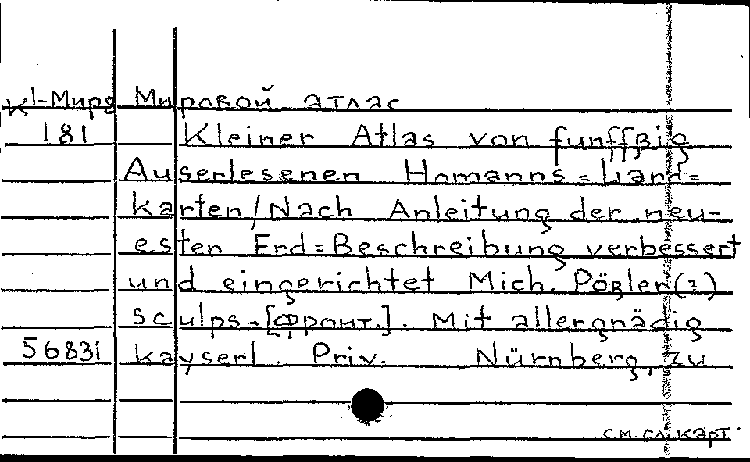 К1-Мира Мировой атлас
181 Kleiner Atlas von funffßig
Auserlesenen Homanns=Land=
karten/Nach Anleitung der neu-
esten Erd=Beschreibung verbessert
und eingerichtet Mich. Pößler(?)
sculps.[фронт.]. Mit allergnädig
56831 kayserl. Priv. Nürnberg, zu
см. сл. карт.